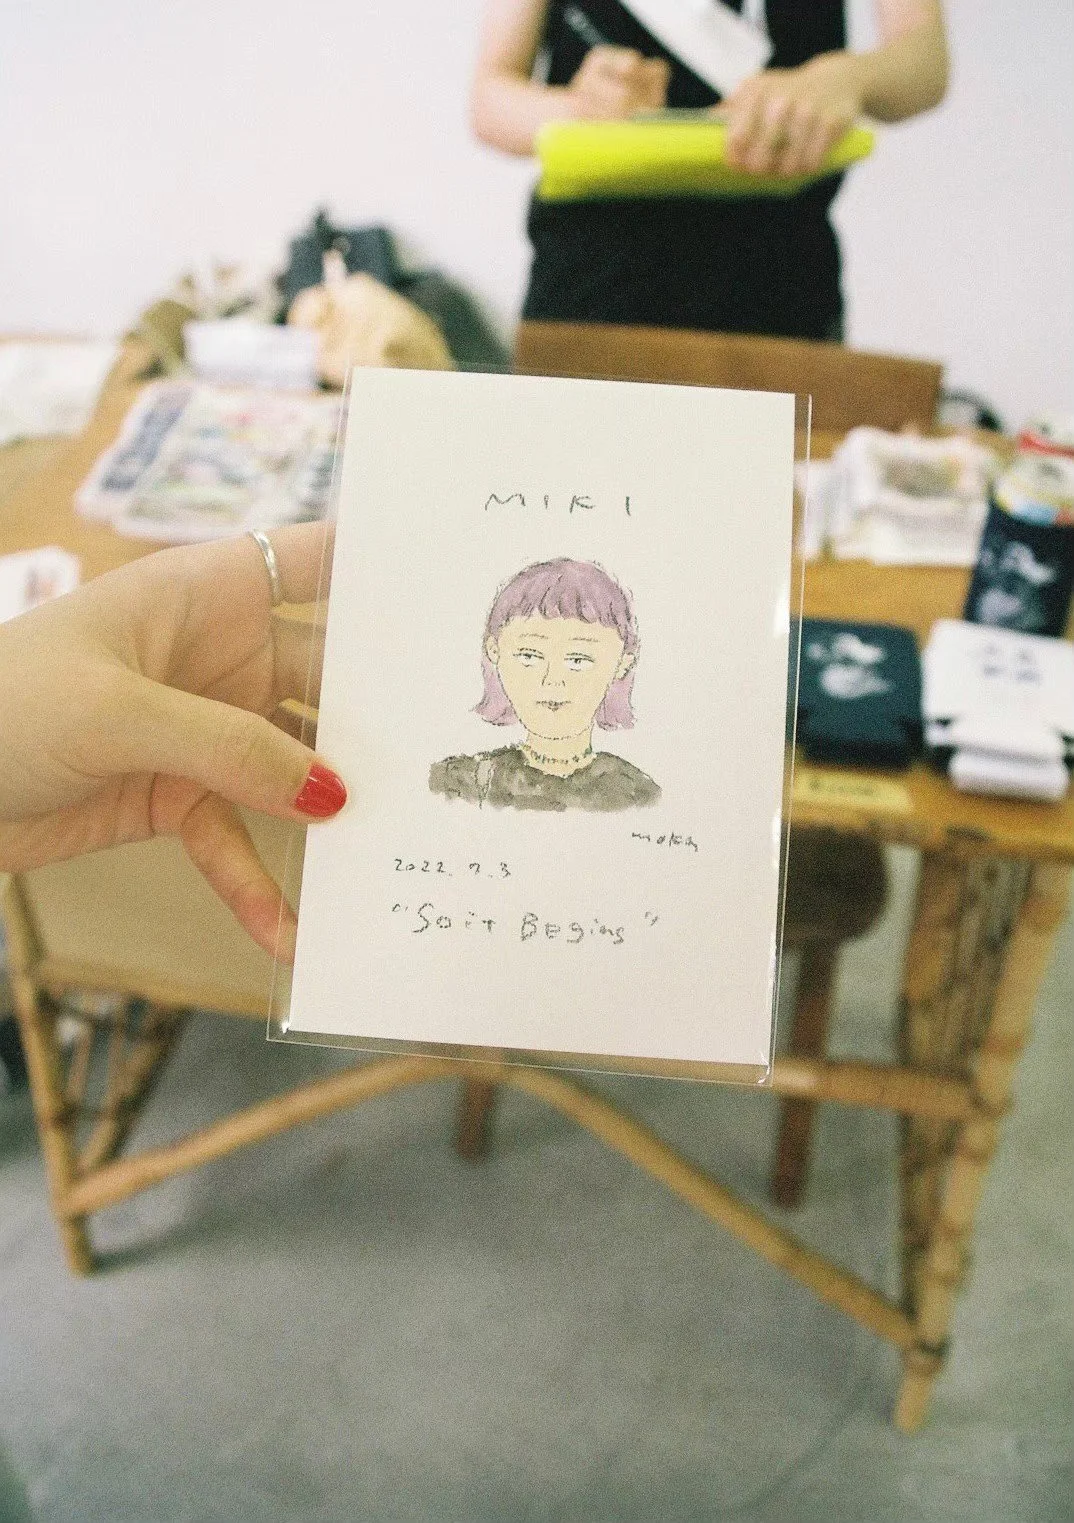 MIKI
moka
2022. 7. 3
"So it Begins"